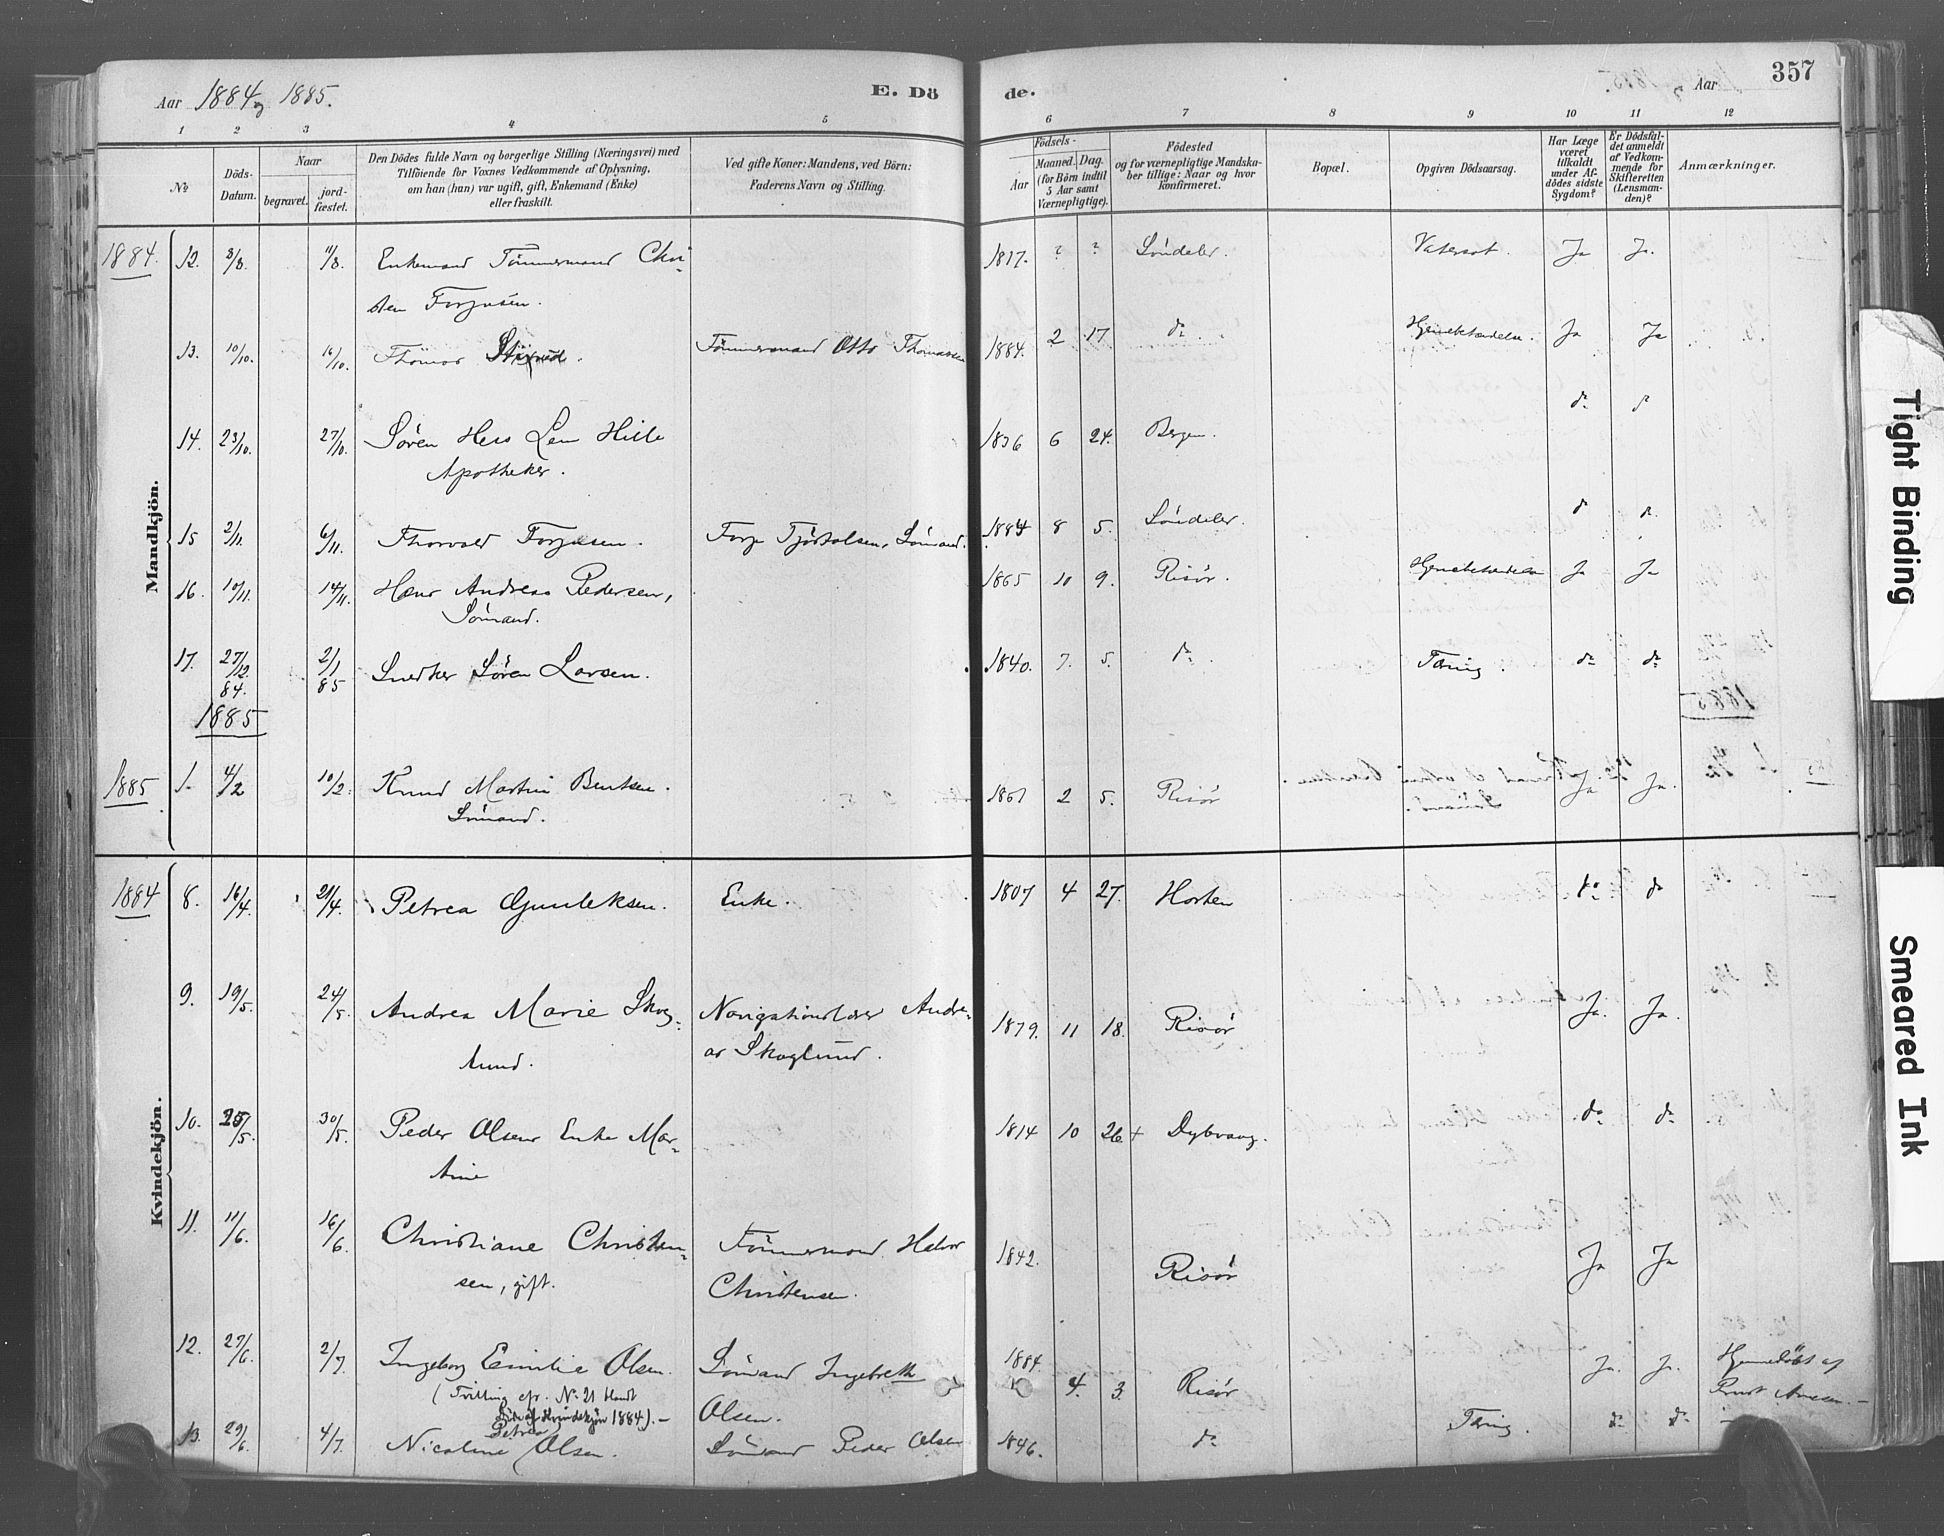 Aar 1884 og 1885.
E. Dö
de.
Aar
357
1 2 3 4 5 6 7 8 9 10 11 12
No
Döds-Datum.
Naar
begravet.
jord-fæstet.
Den Dödes fulde Navn og borgerlige Stilling (Næringsvei) med
Tilföiende for Voxnes Vedkommende af Oplysning,
om han (hun) var ugift, gift, Enkemand (Enke)
eller fraskilt.
Ved gifte Koner: Mandens, ved Börn:
Faderens Navn og Stilling.
Födsels-
Aar
Maaned. Dag.
(for Börn indtil
5 Aar samt
Værnepligtige).
Födested
og for værnepligtige Mandska-
ber tillige: Naar og hvor
konfirmeret.
Bopæl.
Opgiven Dödsaarsag.
Har Læge
været
tilkaldt
under Af-
dödes sidste
Sygdom?
Er Dödsfal-
det anmeldt
af Vedkom-
mende for
Skifteretten
(Lensman-
den)?
Anmærkninger.
Mandkjön.
1884. 12. 3/8. 11/8. Enkemand Tömmermand Chri- 1817. ? ? Söndeler. Vatersot. Ja Ja.
sten Torjusen.
13. 10/10. 16/10. Thomas Tömmermand Otto Thomassen 1884. 2 17. do Hjernebetændelse. Ja Ja
14. 23/10. 27/10. Sören Hess Lem Hille 1836 6 24. Bergen. do do
Apotheker.
15 2/11. 6/11. Thorvald Torjusen. Torje Sömand. 1884 8 5. Söndeler. do do
16. 10/11. 14/11. Hans Andreas Pedersen, 1865 10 9. Risör. Hjernebetændelse Ja Ja
Sömand.
17. 27/12. 84. 2/1 85 Snedker Sören Larsen. 1840. 7. 5. do Tæring. do do
1885
1885 1. 4/2 10/2. Knud Martin Bentsen. 1861 2 5. Risör Ja Ja.
Sömand.
Kvindekjön.
1884 8. 16/4. 21/4. Petrea Gunleksen. Enke. 1807 4 27. Horten do do
9. 19/5. 24/5. Andrea Marie Skog- Navigationslærer Andre- 1879. 11 18. Risör Ja. Ja.
lund. as Skoglund.
10. 25/5. 30/5. Peder Olsens Enke Mar- 1814 10 26 + Dybvaag. do do
tine
11. 11/6. 16/6. Christiane Christen- Tömmermand Halvor 1842. Risör Ja Ja
sen, gift. Christensen.
12. 27/6. 2/7. Ingeborg Emilie Olsen. Sömand Ingebreth 1884. 4. 3. Risör Ja. Ja. Hjemmedöbt af
(Tvilling cfr. No 21 blandt Olsen.
Kvindekjön 1884).-
13. 29/6. 4/7. Petrea
Nicoline Olsen. Sömand Peder Olsen 1846. do Tæring. do do
Tight Binding
Smeared Ink